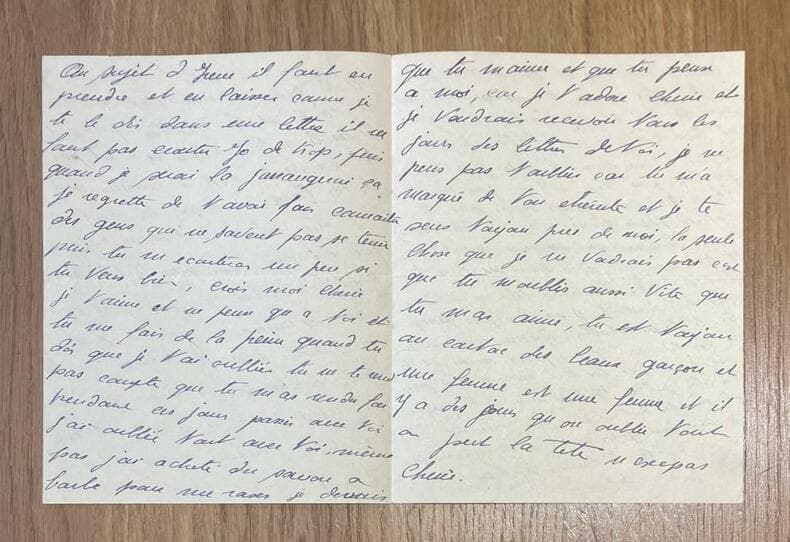 Au sujet d'Yene il faut en
prendre et en laisser came je
te le dis dans une lettre il ne
faut pas ecouter Jo de trop, puis
quand je serai la jarrangerai ça
je regrette de t'avoir fais connaitre
des gens qui ne savent pas se tenir
puis tu m ecouteras un peu si
tu veus bien, crois moi cherie
je t'aime et ne pense qu a toi et
tu me fais de la peine quand tu
dis que je t'ai oubliée tu ne te rend
pas compte que tu m'as rendu fou
pendant ces jours passés avec toi
j'ai oublié tout avec toi, même
pas j'ai acheté du savon a
barbe pour me raser je
que tu m'aime et que tu pense
a moi, car je t'adore cherie et
je voudrais recevoir tous les
jours des lettres de toi, je ne
peus pas t'oublier car tu m'a
marqué de ton etreinte et je te
sens toujou pres de moi, la seule
chose que je ne vadrais pas c'est
que tu m'oublis aussi vite que
tu mas aimé, tu est toujou
au contac des beaux garçon et
une femme est une femme et il
y a des jours qu on oublie tout
on pert la tete n'esepas
Cherie.